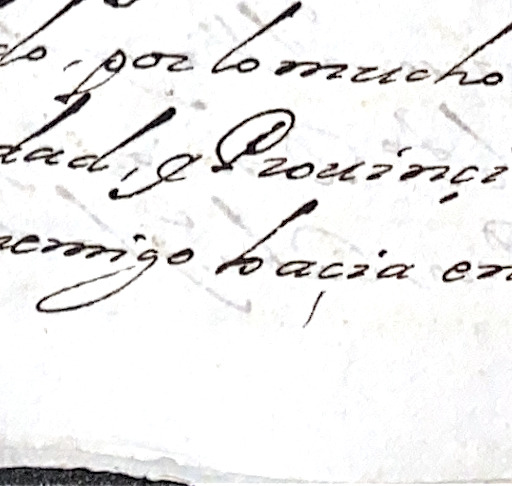 do, por lo mucho
dad, y Prouinçi
nemigo haçia en